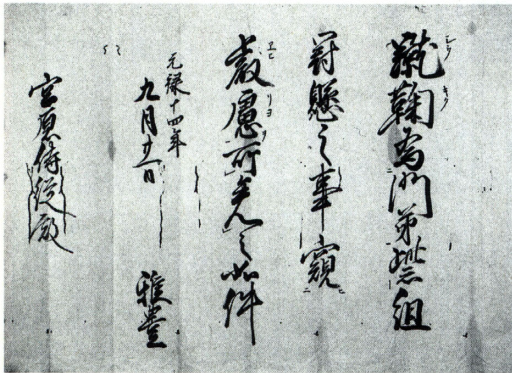 蹴鞠為門弟紫組
冠懸之事窺
叡慮所免之如件
元禄十四年
九月十一日
雅豊
宮原侍従殿